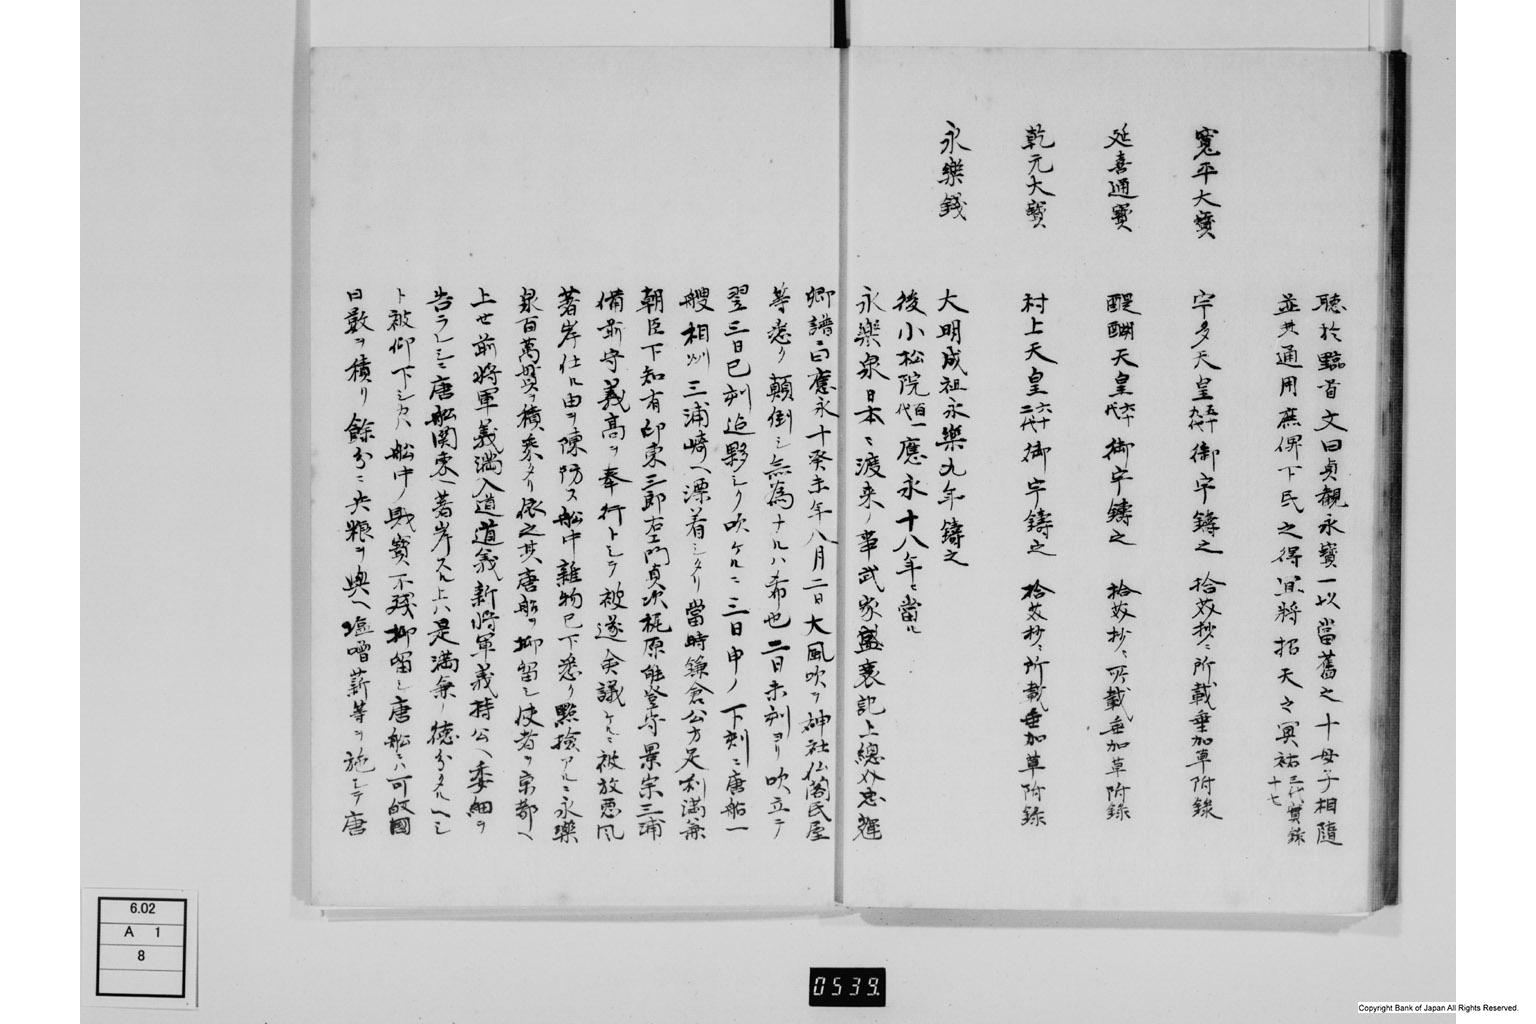 聴於黔首文曰貞観永寳一以當舊之十母子相隨
並共通用庶俾下民之得泯將招天之冥祐三代實録十七
寛平大寳　宇多天皇五十九代御宇鑄之　拾芥抄ニ所載垂加草附録
延喜通寳　醍醐天皇六十代御宇鑄之　拾芥抄ニ所載垂加草附録
乾元大寳　村上天皇六十二代御宇鑄之　拾芥抄ニ所載垂加草附録
永樂錢　大明成祖永樂九年鑄之
後小松院百一代應永十八年ニ當ル
永樂泉日本ニ渡来ノ事武家盛衰記上總介忠輝
卿譜ニ曰應永十癸未年八月二日大風吹テ神社仏閣民屋
等悉ク顛倒シ無為ナルハ希也二日未刻ヨリ吹立テ
翌三日巳刻迨夥シク吹ケルニ三日申ノ下刻ニ唐船一
艘相州三浦崎ヘ漂着シタリ當時鎌倉公方足利満兼
朝臣下知有印東三郎右衛門貞次梶原能登守景宗三浦
備前守義高ヲ奉行トシテ被遂僉議ケルニ被放悪風
著岸仕ル由ヲ陳防ス船中雑物已下悉ク點撿アルニ永樂
泉百萬貫ヲ積乗タリ依之其唐船ヲ抑留シ使者ヲ京都ヘ
上セ前将軍義満入道道義新将軍義持公ヘ委細ヲ
告ラレシニ唐船関東ヘ著岸スル上ハ是満兼ノ徳分タルヘシ
ト被仰下シカハ船中ノ財寳不残抑留シ唐船ニハ可皈國
日數ヲ積リ餘分ニ兵粮ヲ與ヘ塩噌薪等ヲ施シテ唐
6.02
A 1
8
0539.
Copyright Bank of Japan All Rights Reserved.